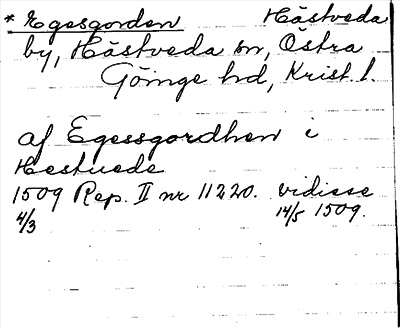 * Egesgorden Hästveda
by, Hästveda sn, Östra
Göinge hd, Krist. l.
af Egessgordhen i
Hestuede
1509 Rep. II nr 11220. vidisse
4/3 14/5 1509.